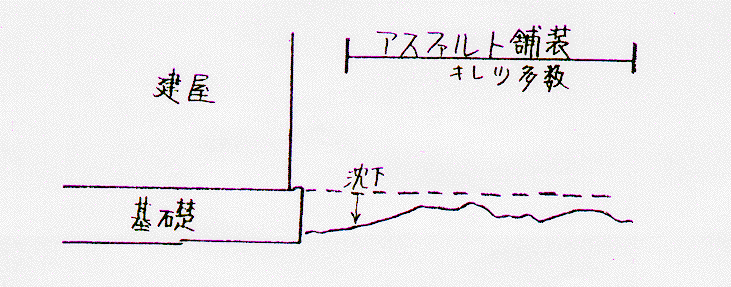 アスファルト舗装
キレツ多数
建屋
沈下
基礎